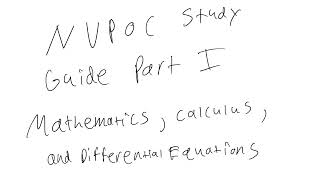 NUPOC Study
Guide Part I
Mathematics, Calculus,
and Differential Equations